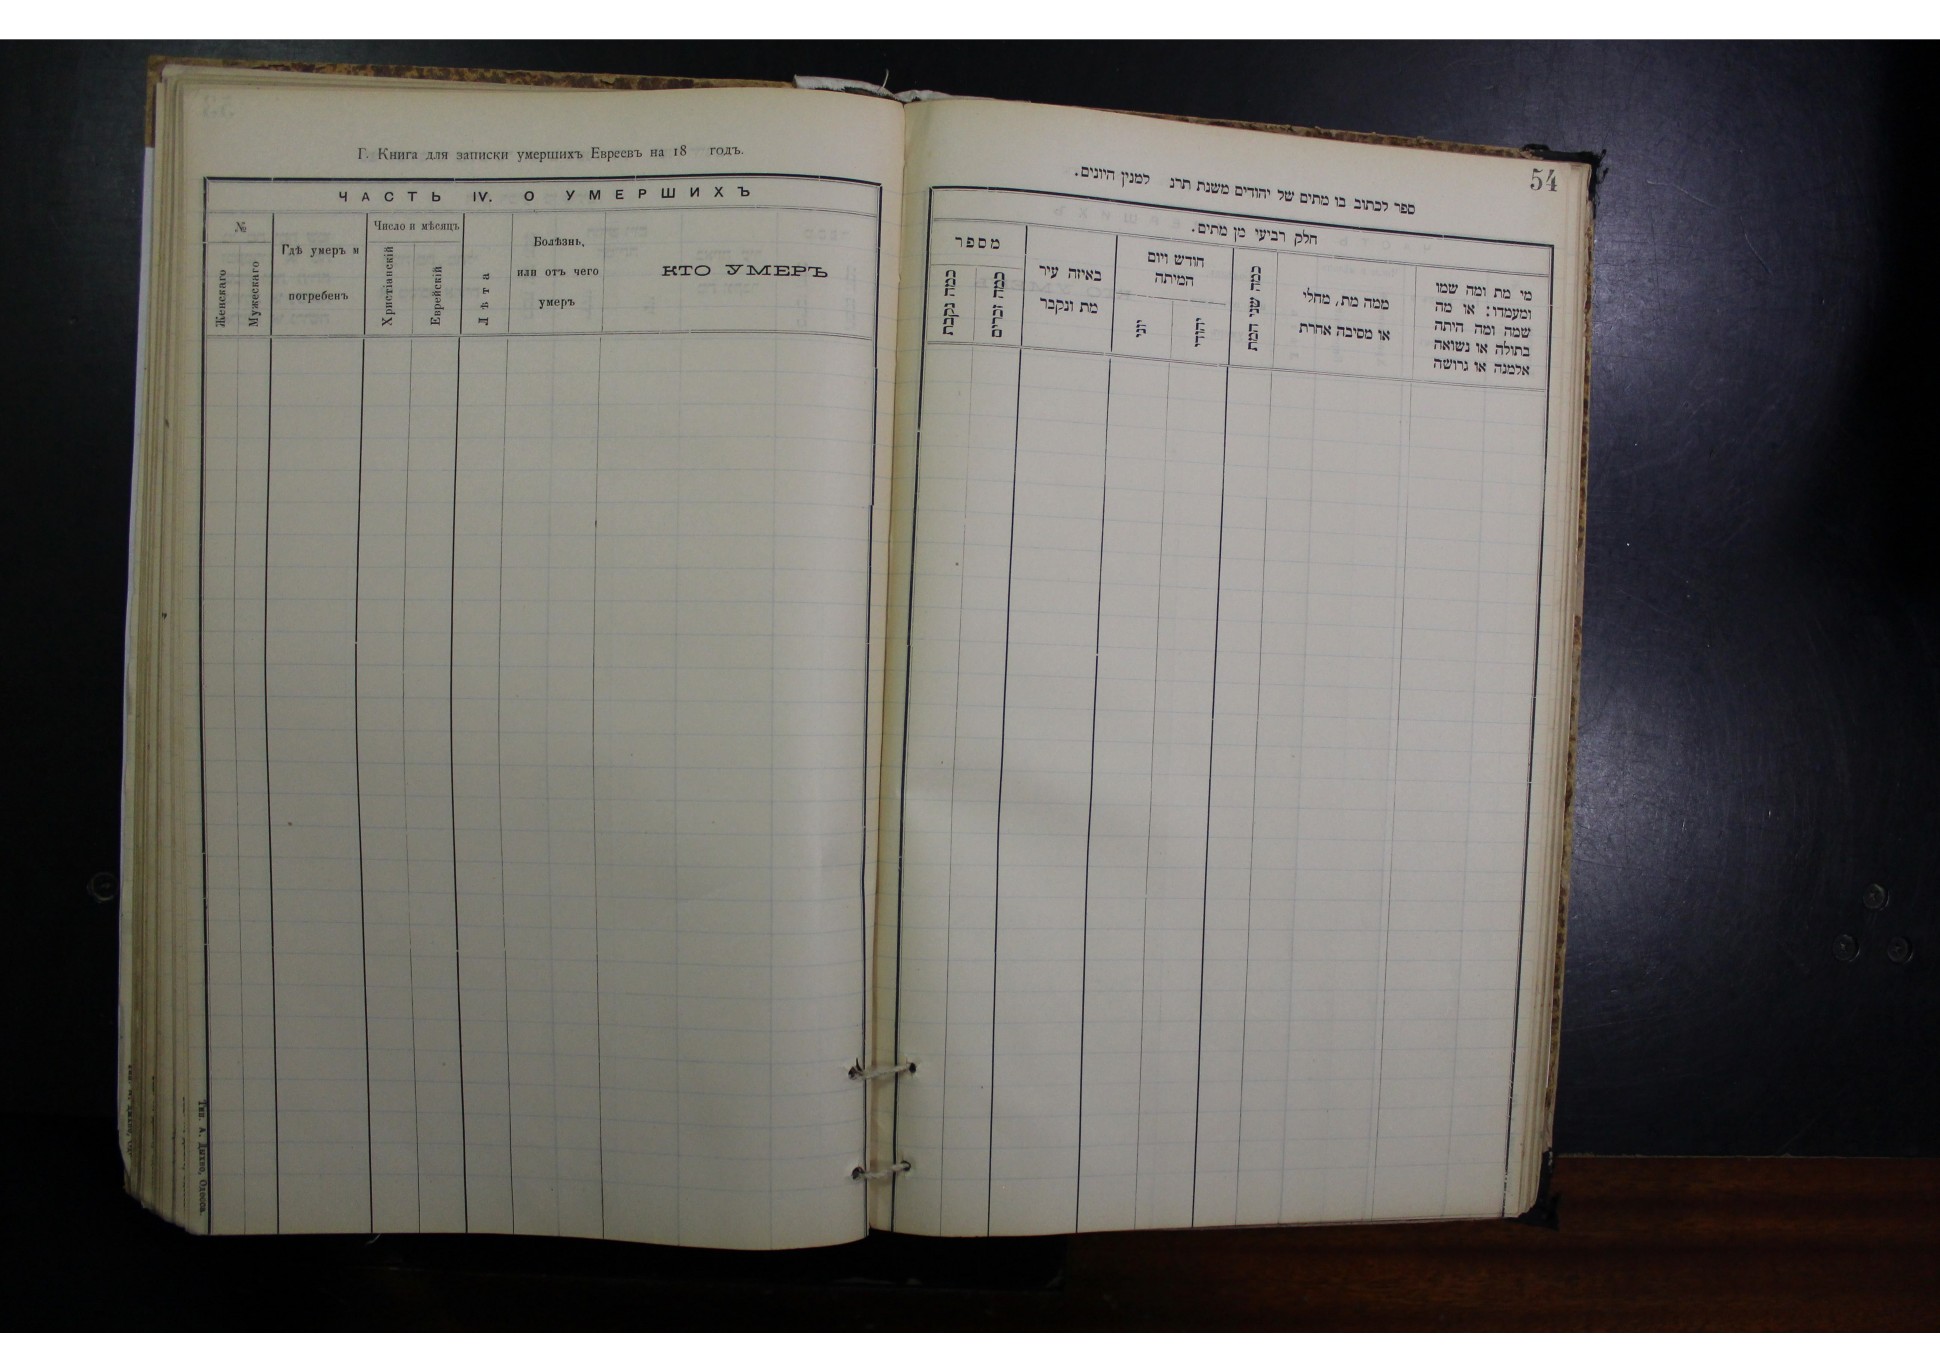 Г. Книга для записки умершихъ Евреевъ на 18 годъ.
ЧАСТЬ IV. О УМЕРШИХЪ
№
Женскаго
Мужескаго
Гдѣ умеръ и
погребенъ
Число и мѣсяцъ
Христіанскій
Еврейскій
Лѣта
Болѣзнь,
или отъ чего
умеръ
КТО УМЕРЪ
Тип. А. Дыхно, Одесса.
54
ספר לכתוב בו מתים של יהודים משנת תרנ למנין היונים.
חלק רביעי מן מתים.
מי מת ומה שמו
ומעמדו: או מה
שמה ומה היתה
בתולה או נשואה
אלמנה או גרושה
ממה מת, מחלי
או מסיבה אחרת
כמה שני המת
חודש ויום
המיתה
יהודי
יוני
באיזה עיר
מת ונקבר
מספר
כמה זכרים
כמה נקבת